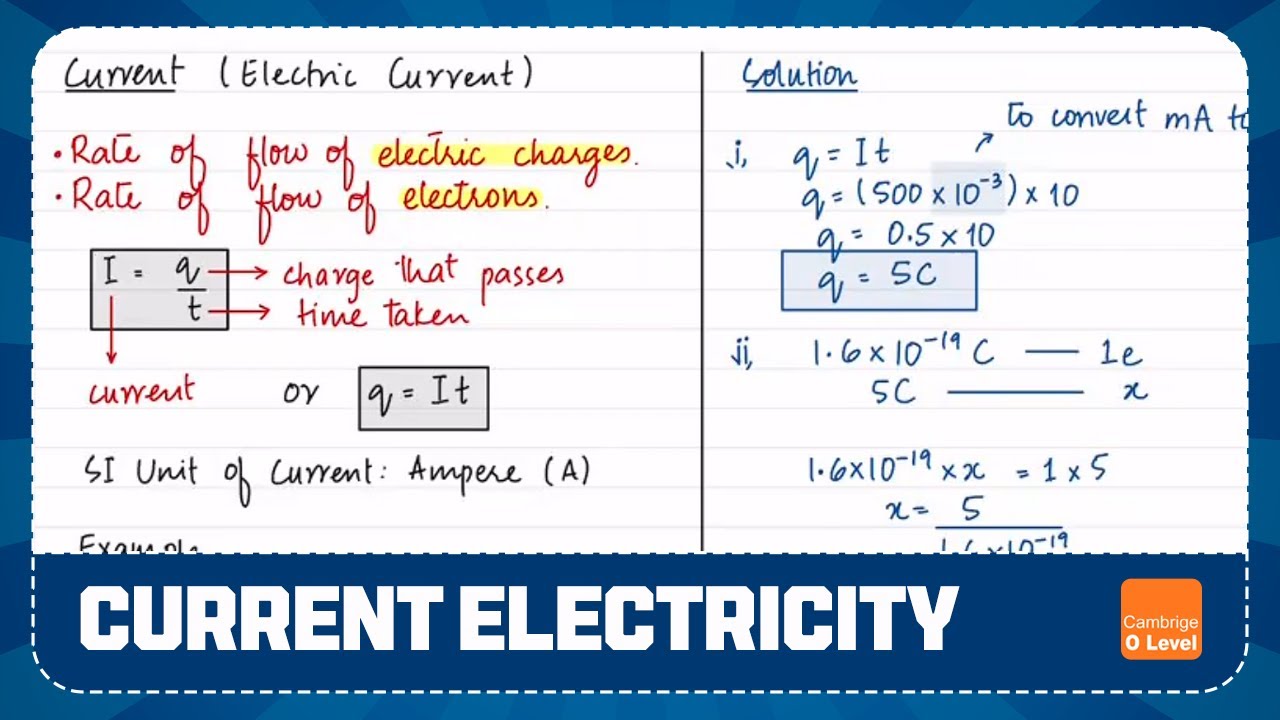 Current (Electric Current)
• Rate of flow of electric charges.
• Rate of flow of electrons.
I = q/t
charge that passes
time taken
current
or q = It
SI Unit of Current: Ampere (A)
Example
Solution
to convert mA to
i, q = It
q = (500 × 10⁻³) × 10
q = 0.5 × 10
q = 5C
ii, 1.6 × 10⁻¹⁹ C — 1e
5C — x
1.6 × 10⁻¹⁹ × x = 1 × 5
x = 5
1.6 × 10⁻¹⁹
CURRENT ELECTRICITY
Cambrige
O Level